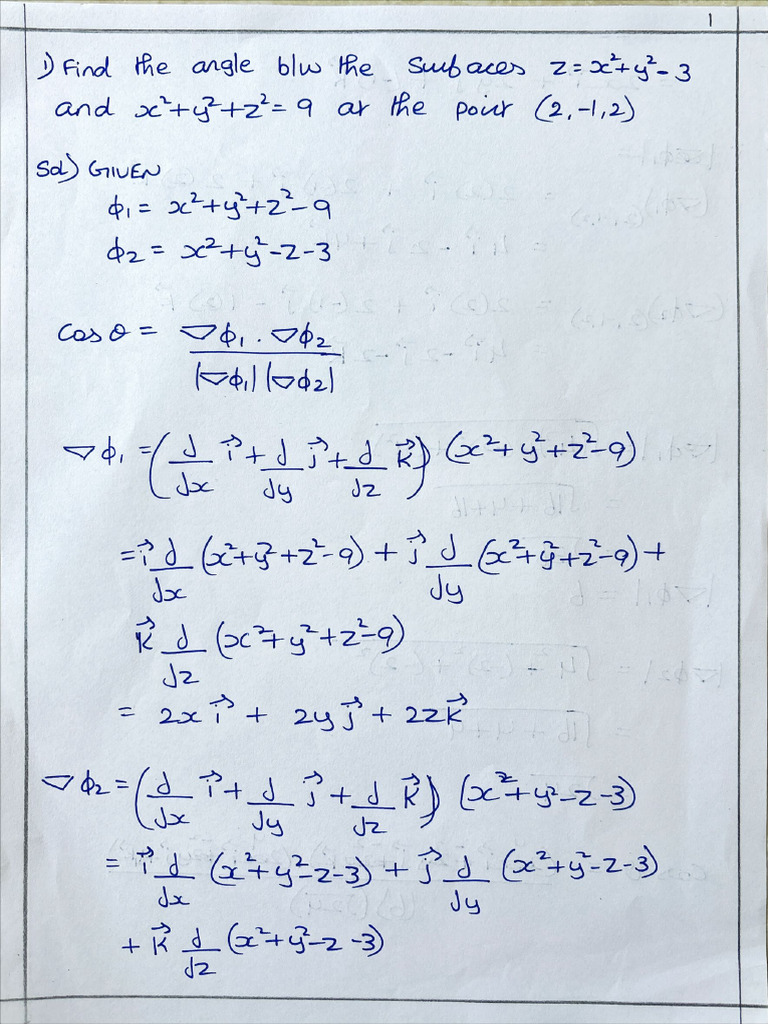 1
1) Find the angle b/w the surfaces z = x² + y² - 3
and x² + y² + z² = 9 at the point (2, -1, 2)
Sol) GIVEN
ϕ₁ = x² + y² + z² - 9
ϕ₂ = x² + y² - z - 3
cos θ = ∇ϕ₁ . ∇ϕ₂ / |∇ϕ₁| |∇ϕ₂|
∇ϕ₁ = (∂/∂x i⃗ + ∂/∂y j⃗ + ∂/∂z k⃗) (x² + y² + z² - 9)
= i⃗ ∂/∂x (x² + y² + z² - 9) + j⃗ ∂/∂y (x² + y² + z² - 9) +
k⃗ ∂/∂z (x² + y² + z² - 9)
= 2x i⃗ + 2y j⃗ + 2z k⃗
∇ϕ₂ = (∂/∂x i⃗ + ∂/∂y j⃗ + ∂/∂z k⃗) (x² + y² - z - 3)
= i⃗ ∂/∂x (x² + y² - z - 3) + j⃗ ∂/∂y (x² + y² - z - 3)
+ k⃗ ∂/∂z (x² + y² - z - 3)